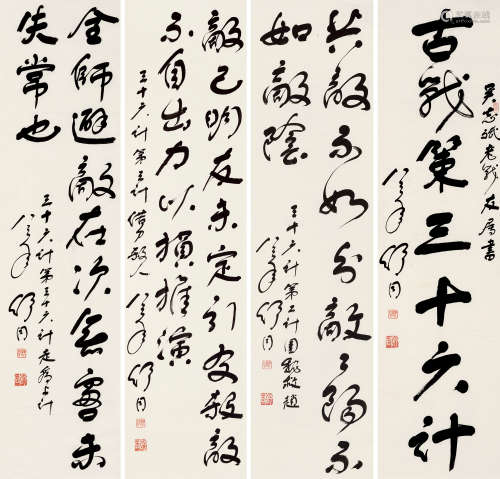 吴志砥老战友属书
古战策三十六计
舒同
共敌不如分敌敌阳不
如敌阴
三十六计第二计围魏救赵
舒同
敌已明友未定引友杀敌
不自出力以损推演
三十六计第三计借刀杀人
舒同
全师避敌左次无咎未
失常也
三十六计第三十六计走为上计
舒同